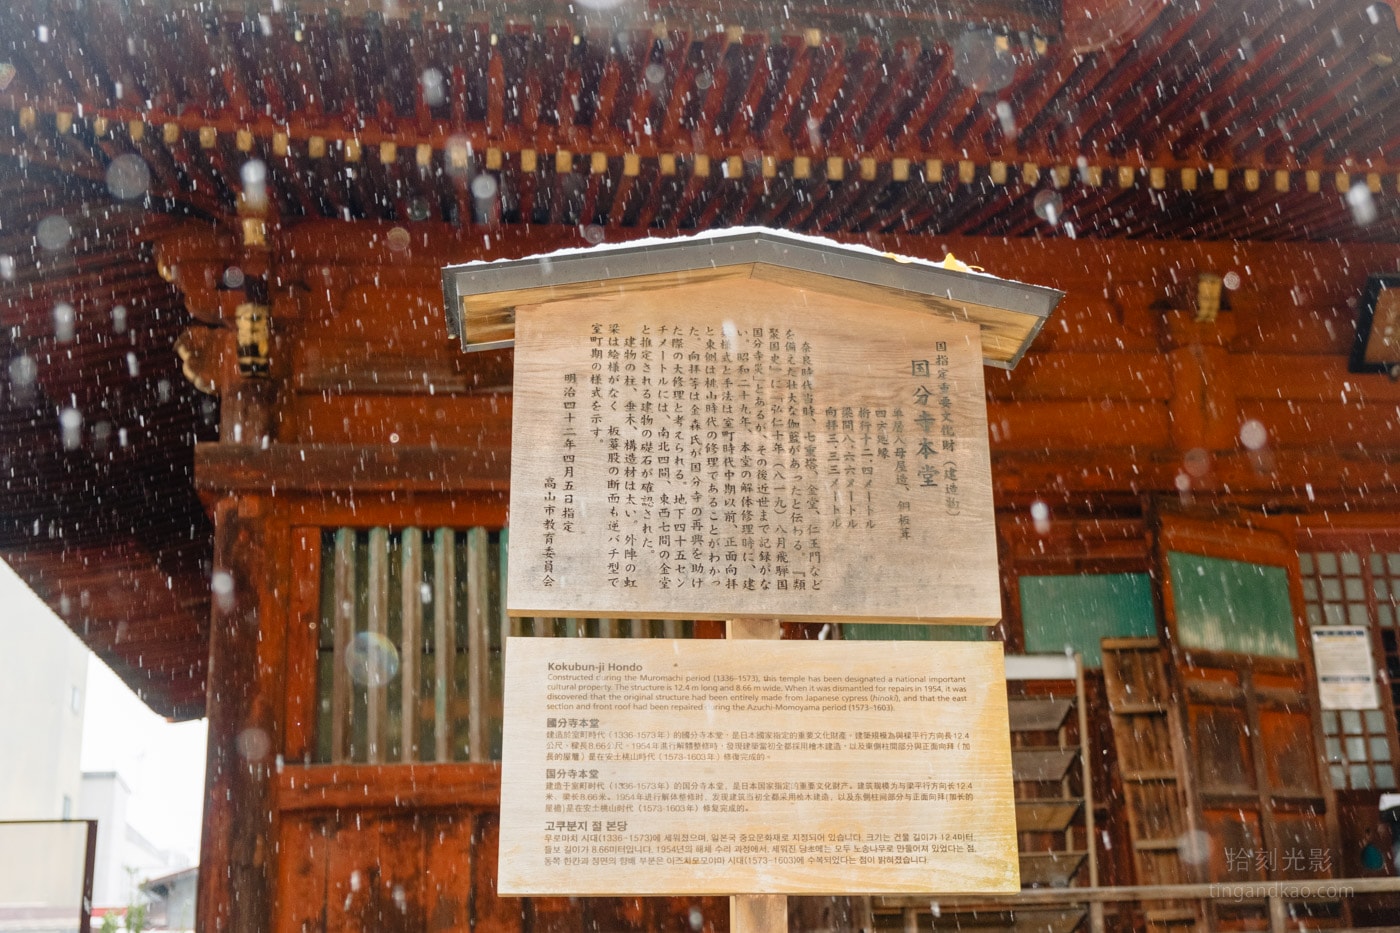 国指定重要文化財(建造物)
国分寺本堂
単層入母屋造、銅板葺
四犬地縁
桁行十二、四メートル
梁間八、六六メートル
向拝三、三三メートル
奈良時代当時、七重塔、金堂、仁王門など
を備えた壮大な伽藍があったと伝わる。『類
聚国史』に「弘仁十年(八一九)八月飛騨国
国分寺災」とあるが、その後近世まで記録がな
い。昭和二十九年、本堂の解体修理時に、建
築様式と手法は室町時代中期以前、正面向拝
と東側は桃山時代の修理であることがわかっ
た。向拝等は金森氏が国分寺の再興を助け
た際の大修理と考えられる。地下四十五セン
チメートルには、南北四間、東西七間の金堂
と推定される建物の礎石が確認された。
建物の柱、垂木、構造材は太い。外陣の虹
梁は絵様がなく、板蟇股の断面も逆バチ型で
室町期の様式を示す。
明治四十二年四月五日指定
高山市教育委員会
Kokubun-ji Hondo
Constructed during the Muromachi period (1336-1573), this temple has been designated a national important
cultural property. The structure is 12.4 m long and 8.66 m wide. When it was dismantled for repairs in 1954, it was
discovered that the original structure had been entirely made from Japanese cypress (hinoki), and that the east
section and front roof had been repaired during the Azuchi-Momoyama period (1573-1603).
國分寺本堂
建造於室町時代(1336-1573年)的國分寺本堂,是日本國家指定的重要文化財產。建築規模為與樑平行方向長12.4
公尺、樑長8.66公尺。1954年進行解體整修時,發現建築當初全都採用檜木建造,以及東側柱間部分與正面向拜(加
長的屋簷)是在安土桃山時代(1573-1603年)修復完成的。
国分寺本堂
建造于室町时代(1336-1573年)的国分寺本堂,是日本国家指定的重要文化财产。建筑规模为与梁平行方向长12.4
米、梁长8.66米。1954年进行解体整修时,发现建筑当初全都采用桧木建造,以及东侧柱间部分与正面向拜(加长的
屋檐)是在安土桃山时代(1573-1603年)修复完成的。
고쿠분지 절 본당
무로마치 시대(1336-1573)에 세워졌으며, 일본국 중요문화재로 지정되어 있습니다. 크기는 건물 길이가 12.4미터,
들보 길이가 8.66미터입니다. 1954년의 해체 수리 과정에서, 세워진 당초에는 모두 노송나무로 만들어져 있었다는 점,
동쪽 한칸과 정면의 향배 부분은 아즈치모모야마 시대(1573-1603)에 수복되었다는 점이 밝혀졌습니다.
拾刻光影
tingandkao.com